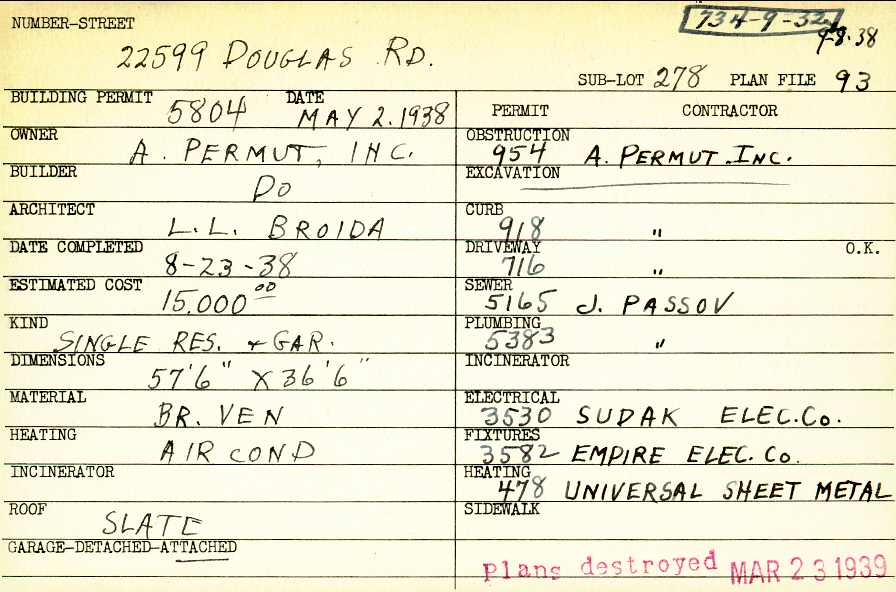 NUMBER-STREET
734-9-32
9-8-38
22599 DOUGLAS RD.
SUB-LOT 278 PLAN FILE 93
BUILDING PERMIT 5804 DATE MAY 2.1938
OWNER A. PERMUT, INC.
BUILDER DO
ARCHITECT L.L. BROIDA
DATE COMPLETED 8-23-38
ESTIMATED COST 15,000 00
KIND SINGLE RES. + GAR.
DIMENSIONS 57'6" X 36'6"
MATERIAL BR. VEN
HEATING AIR COND
INCINERATOR
ROOF SLATE
GARAGE-DETACHED-ATTACHED
PERMIT CONTRACTOR
OBSTRUCTION 954 A. PERMUT. INC.
EXCAVATION
CURB 918 "
DRIVEWAY 716 " O.K.
SEWER 5165 J. PASSOV
PLUMBING 5383 "
INCINERATOR
ELECTRICAL 3530 SUDAK ELEC.CO.
FIXTURES 3582 EMPIRE ELEC. CO.
HEATING 478 UNIVERSAL SHEET METAL
SIDEWALK
Plans destroyed MAR 23 1939